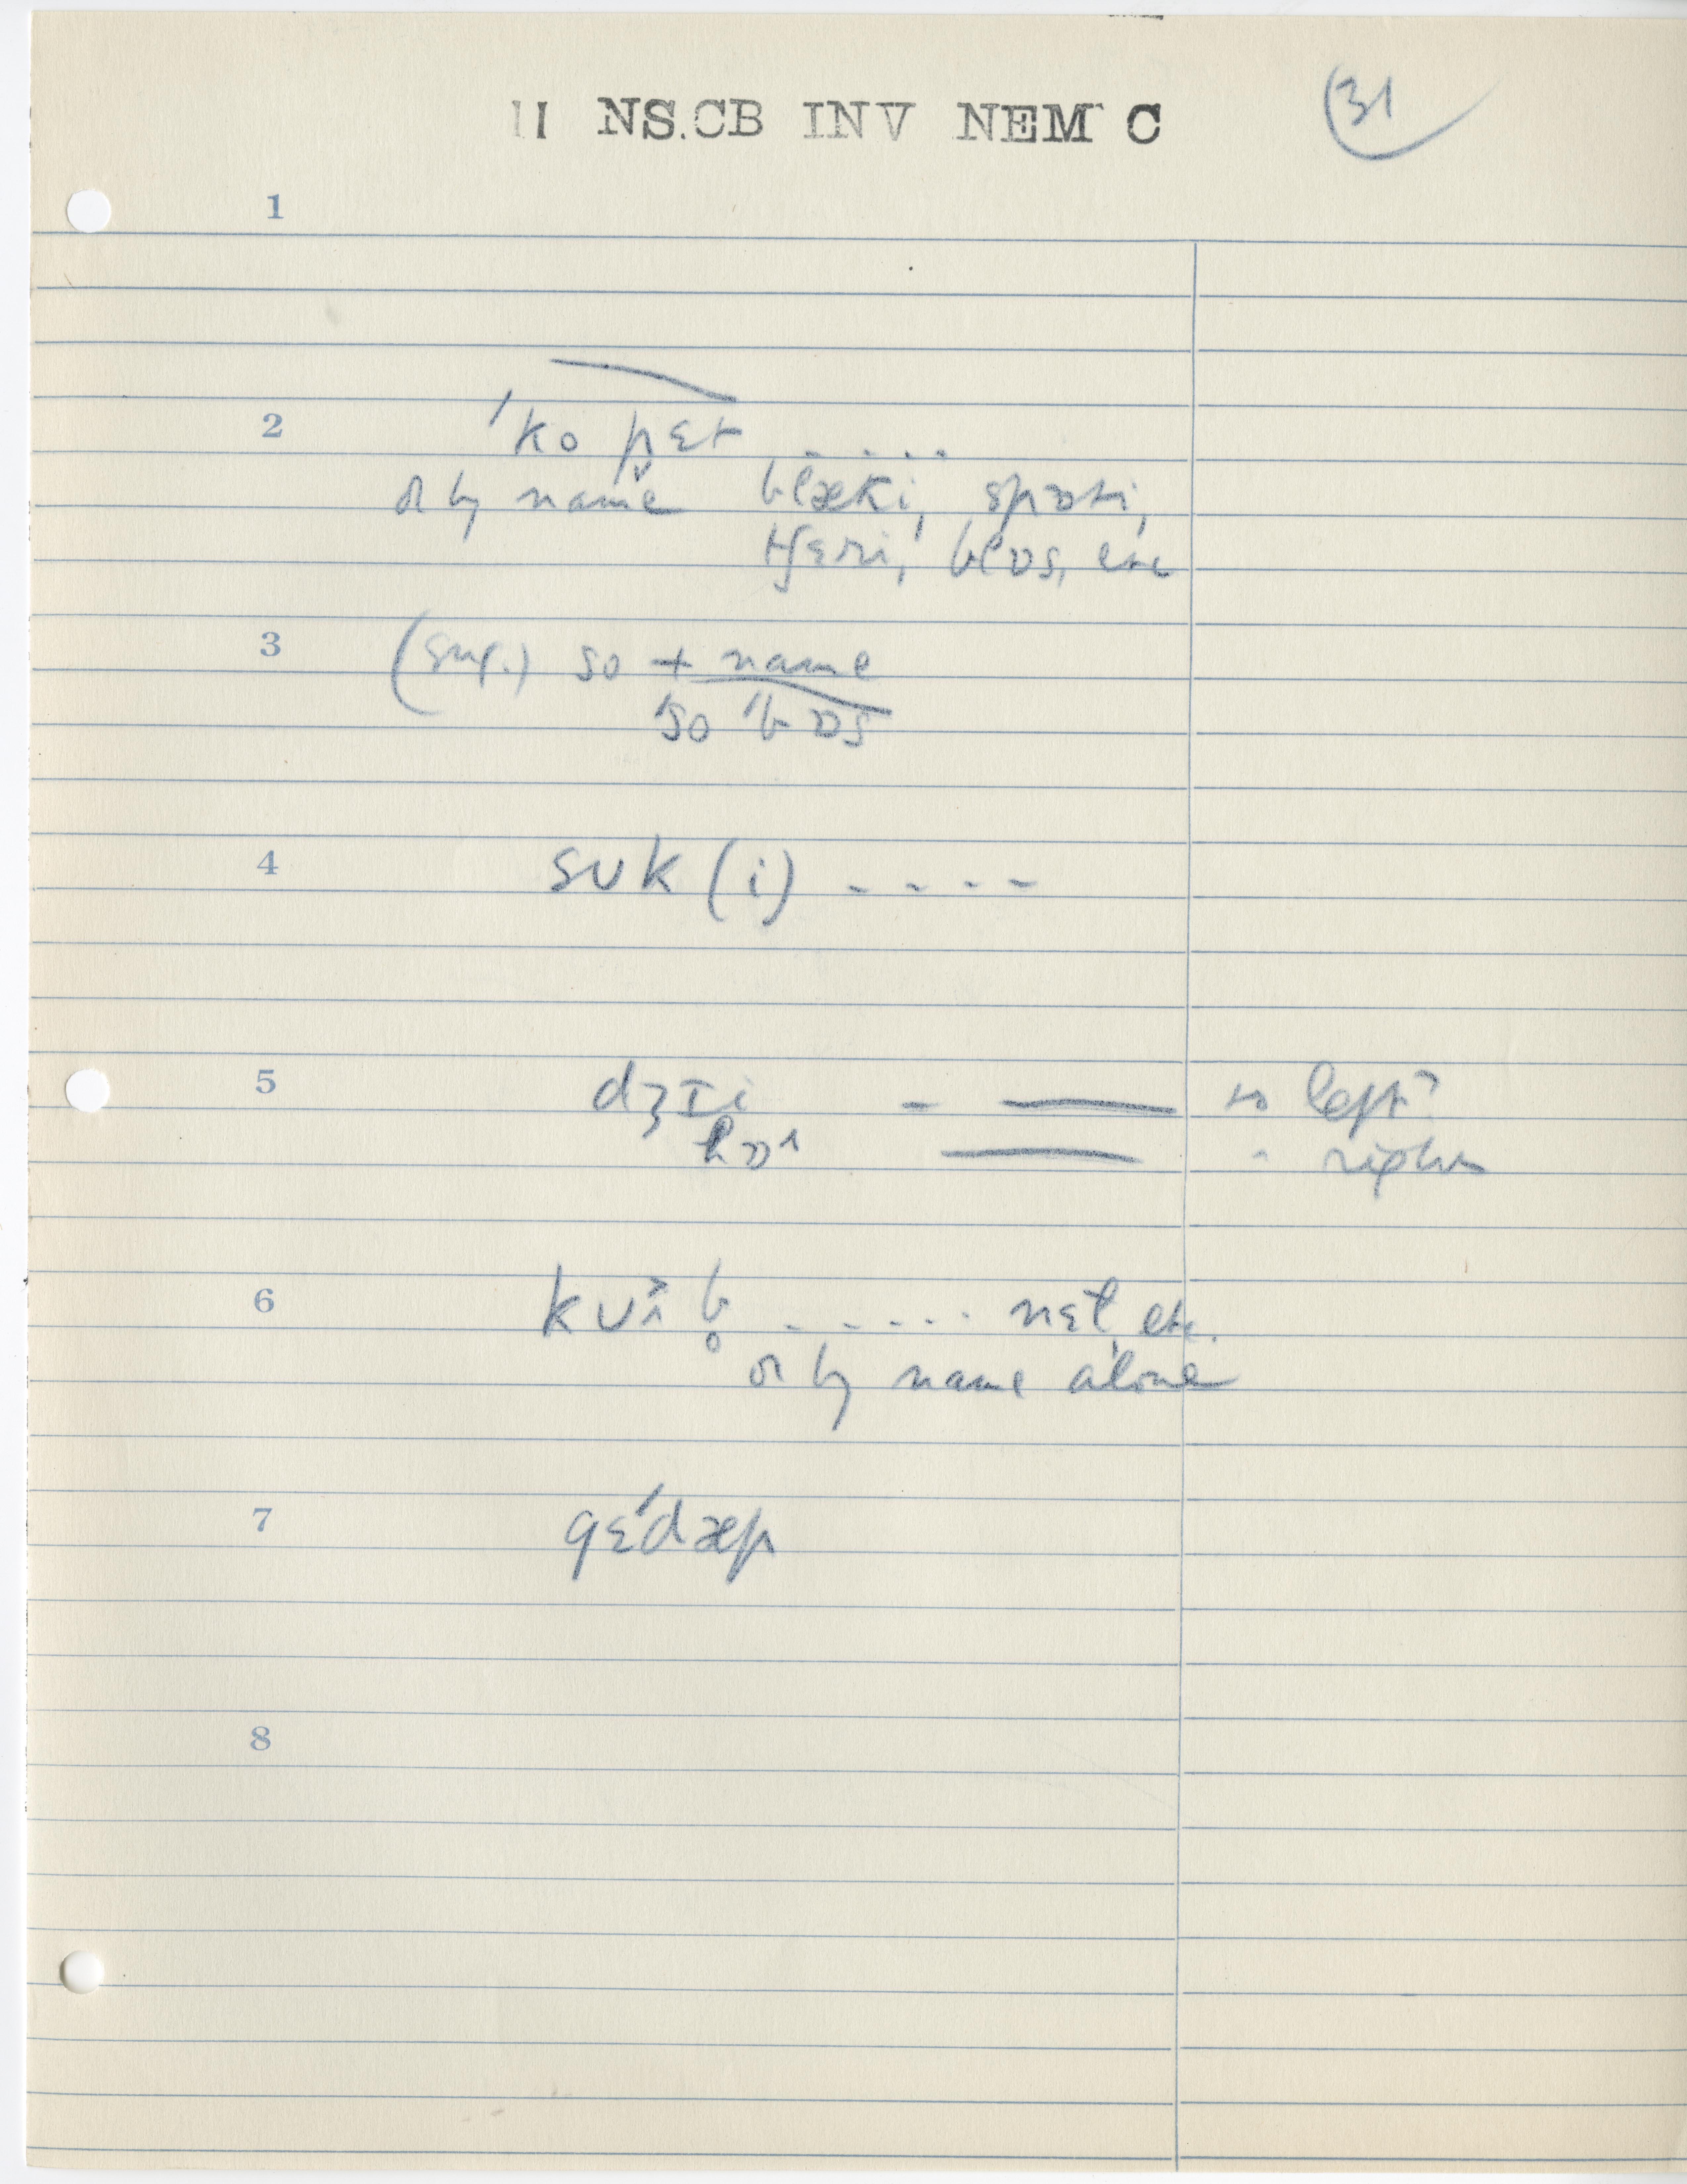 11 NS.CB INV NEM C
31
1
2
ˈko pɛt . . . . .
or by name blæki, spɒti,
tʃɛri, blɒs, etc
3
(sug.) so + name
ˈso ˈbɒs
4
sʊk (i) - - - -
5
dʒɪi - — to left
hɒ — " right
6
kʊ b̥ - - - - - nɛl, etc.
or by name alone
7
gɛˈdæp
8